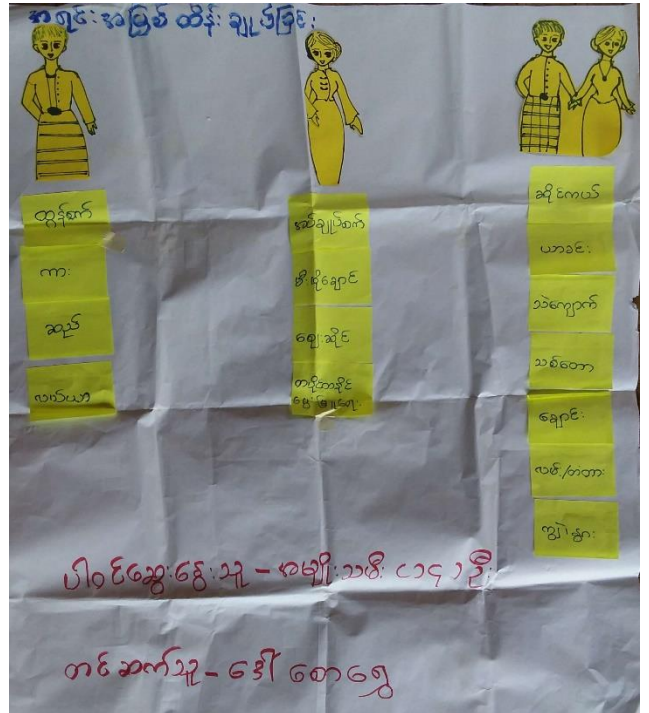 အရင်းအမြစ် ထိန်းချုပ်ခြင်း
ထွန်စက်
ကား
ဆည်
လယ်ယာ
အပ်ချုပ်စက်
မီးဖိုချောင်
ဈေးဆိုင်
တစ်ပိုင်တစ်နိုင်
မွေးမြူရေး
ဆိုင်ကယ်
ယာခင်း
သဲကျောက်
သစ်တော
ချောင်း
လမ်း/တံတား
ကျွဲ၊ နွား
ပါဝင်ဆွေးနွေးသူ - အမျိုးသမီး (၁၄) ဦး
တင်ဆက်သူ - ဒေါ်စောရွှေ